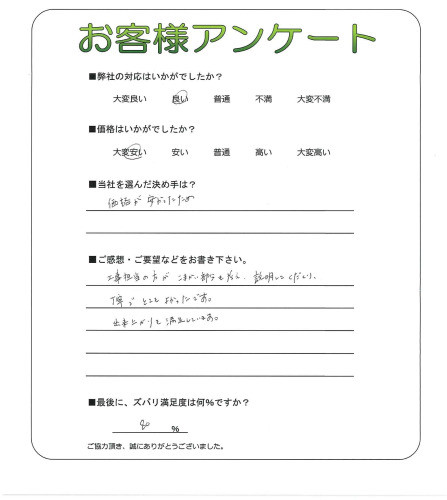 お客様アンケート
■弊社の対応はいかがでしたか？
大変良い 良い 普通 不満 大変不満
■価格はいかがでしたか？
大変安い 安い 普通 高い 大変高い
■当社を選んだ決め手は？
価格が安かったため
■ご感想・ご要望などをお書き下さい。
工事担当の方が こまかい部分も 説明してくださり、
丁寧でとてもよかったです。
出来上がりも満足しています。
■最後に、ズバリ満足度は何%ですか？
80 %
ご協力頂き、誠にありがとうございました。